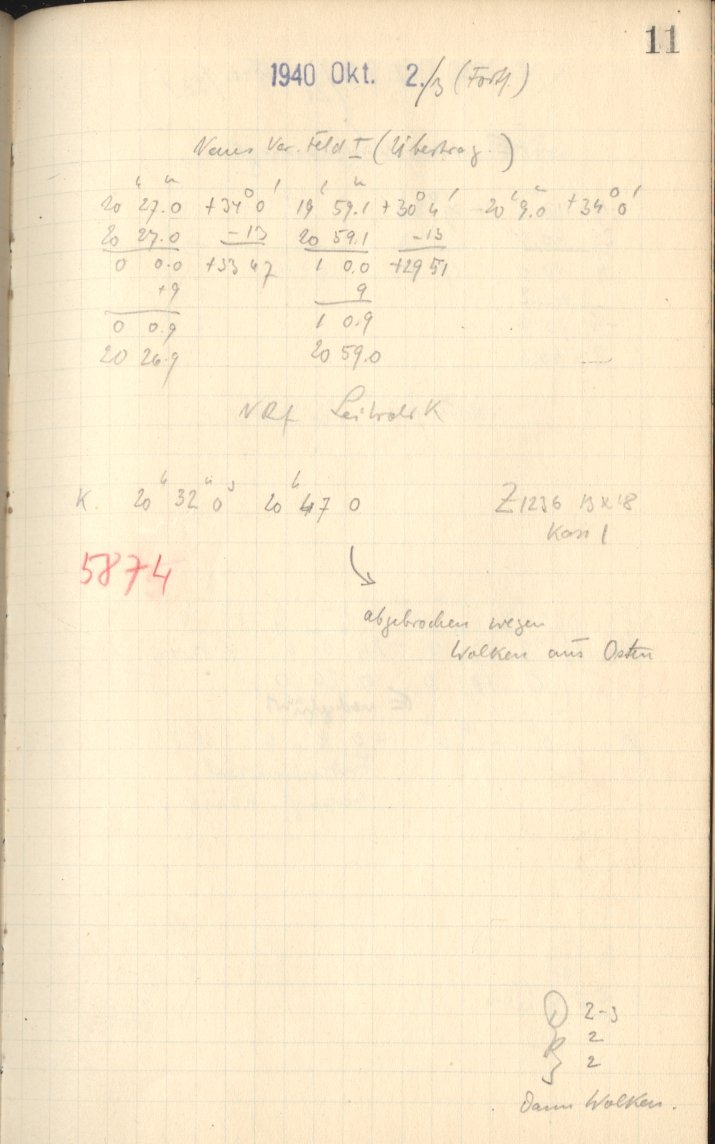 11
1940 Okt. 2./3 (Forts.)
Neues Var. Feld I (Übertrag.)
20ʰ 27ᵐ.0 +34° 0' 19ʰ 59ᵐ.1 +30° 4' 20ʰ 9ᵐ.0 +34° 0'
20 27.0 -13 20 59.1 -13
0 0.0 +33 47 1 0.0 +29 51
+9 9
0 0.9 1 0.9
20 26.9 20 59.0
—
K. 20ʰ 32ᵐ 0ˢ 20ʰ 47 0 Z1236 13x18
Kass 1
5874
abgebrochen wegen
Wolken aus Osten
2-3
2
2
Dann Wolken.